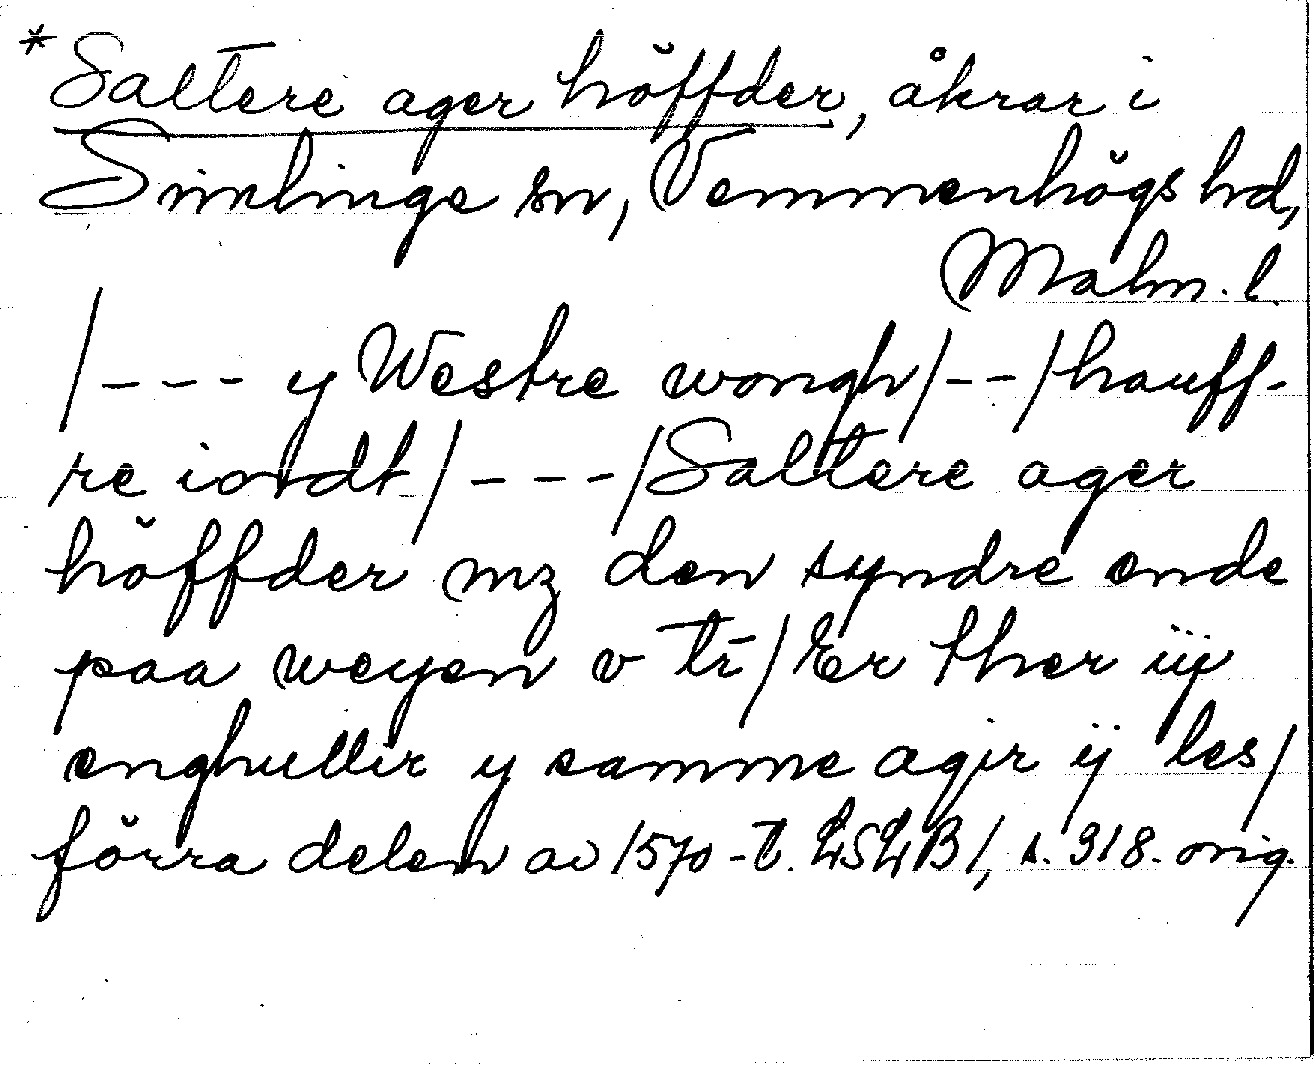 *Saltere ager höffder, åkrar i
Simlinge sn, Vemmenhögs hd,
Malm. l.
/--- y Westre wongh/--/hauff-
re iordt/---/Saltere ager
höffder mz den syndre ende
paa weyen v tr/Er ther iij
enghullir y samme agir ij les/
förra delen av 1570-t. LSLB/, s. 318. orig.